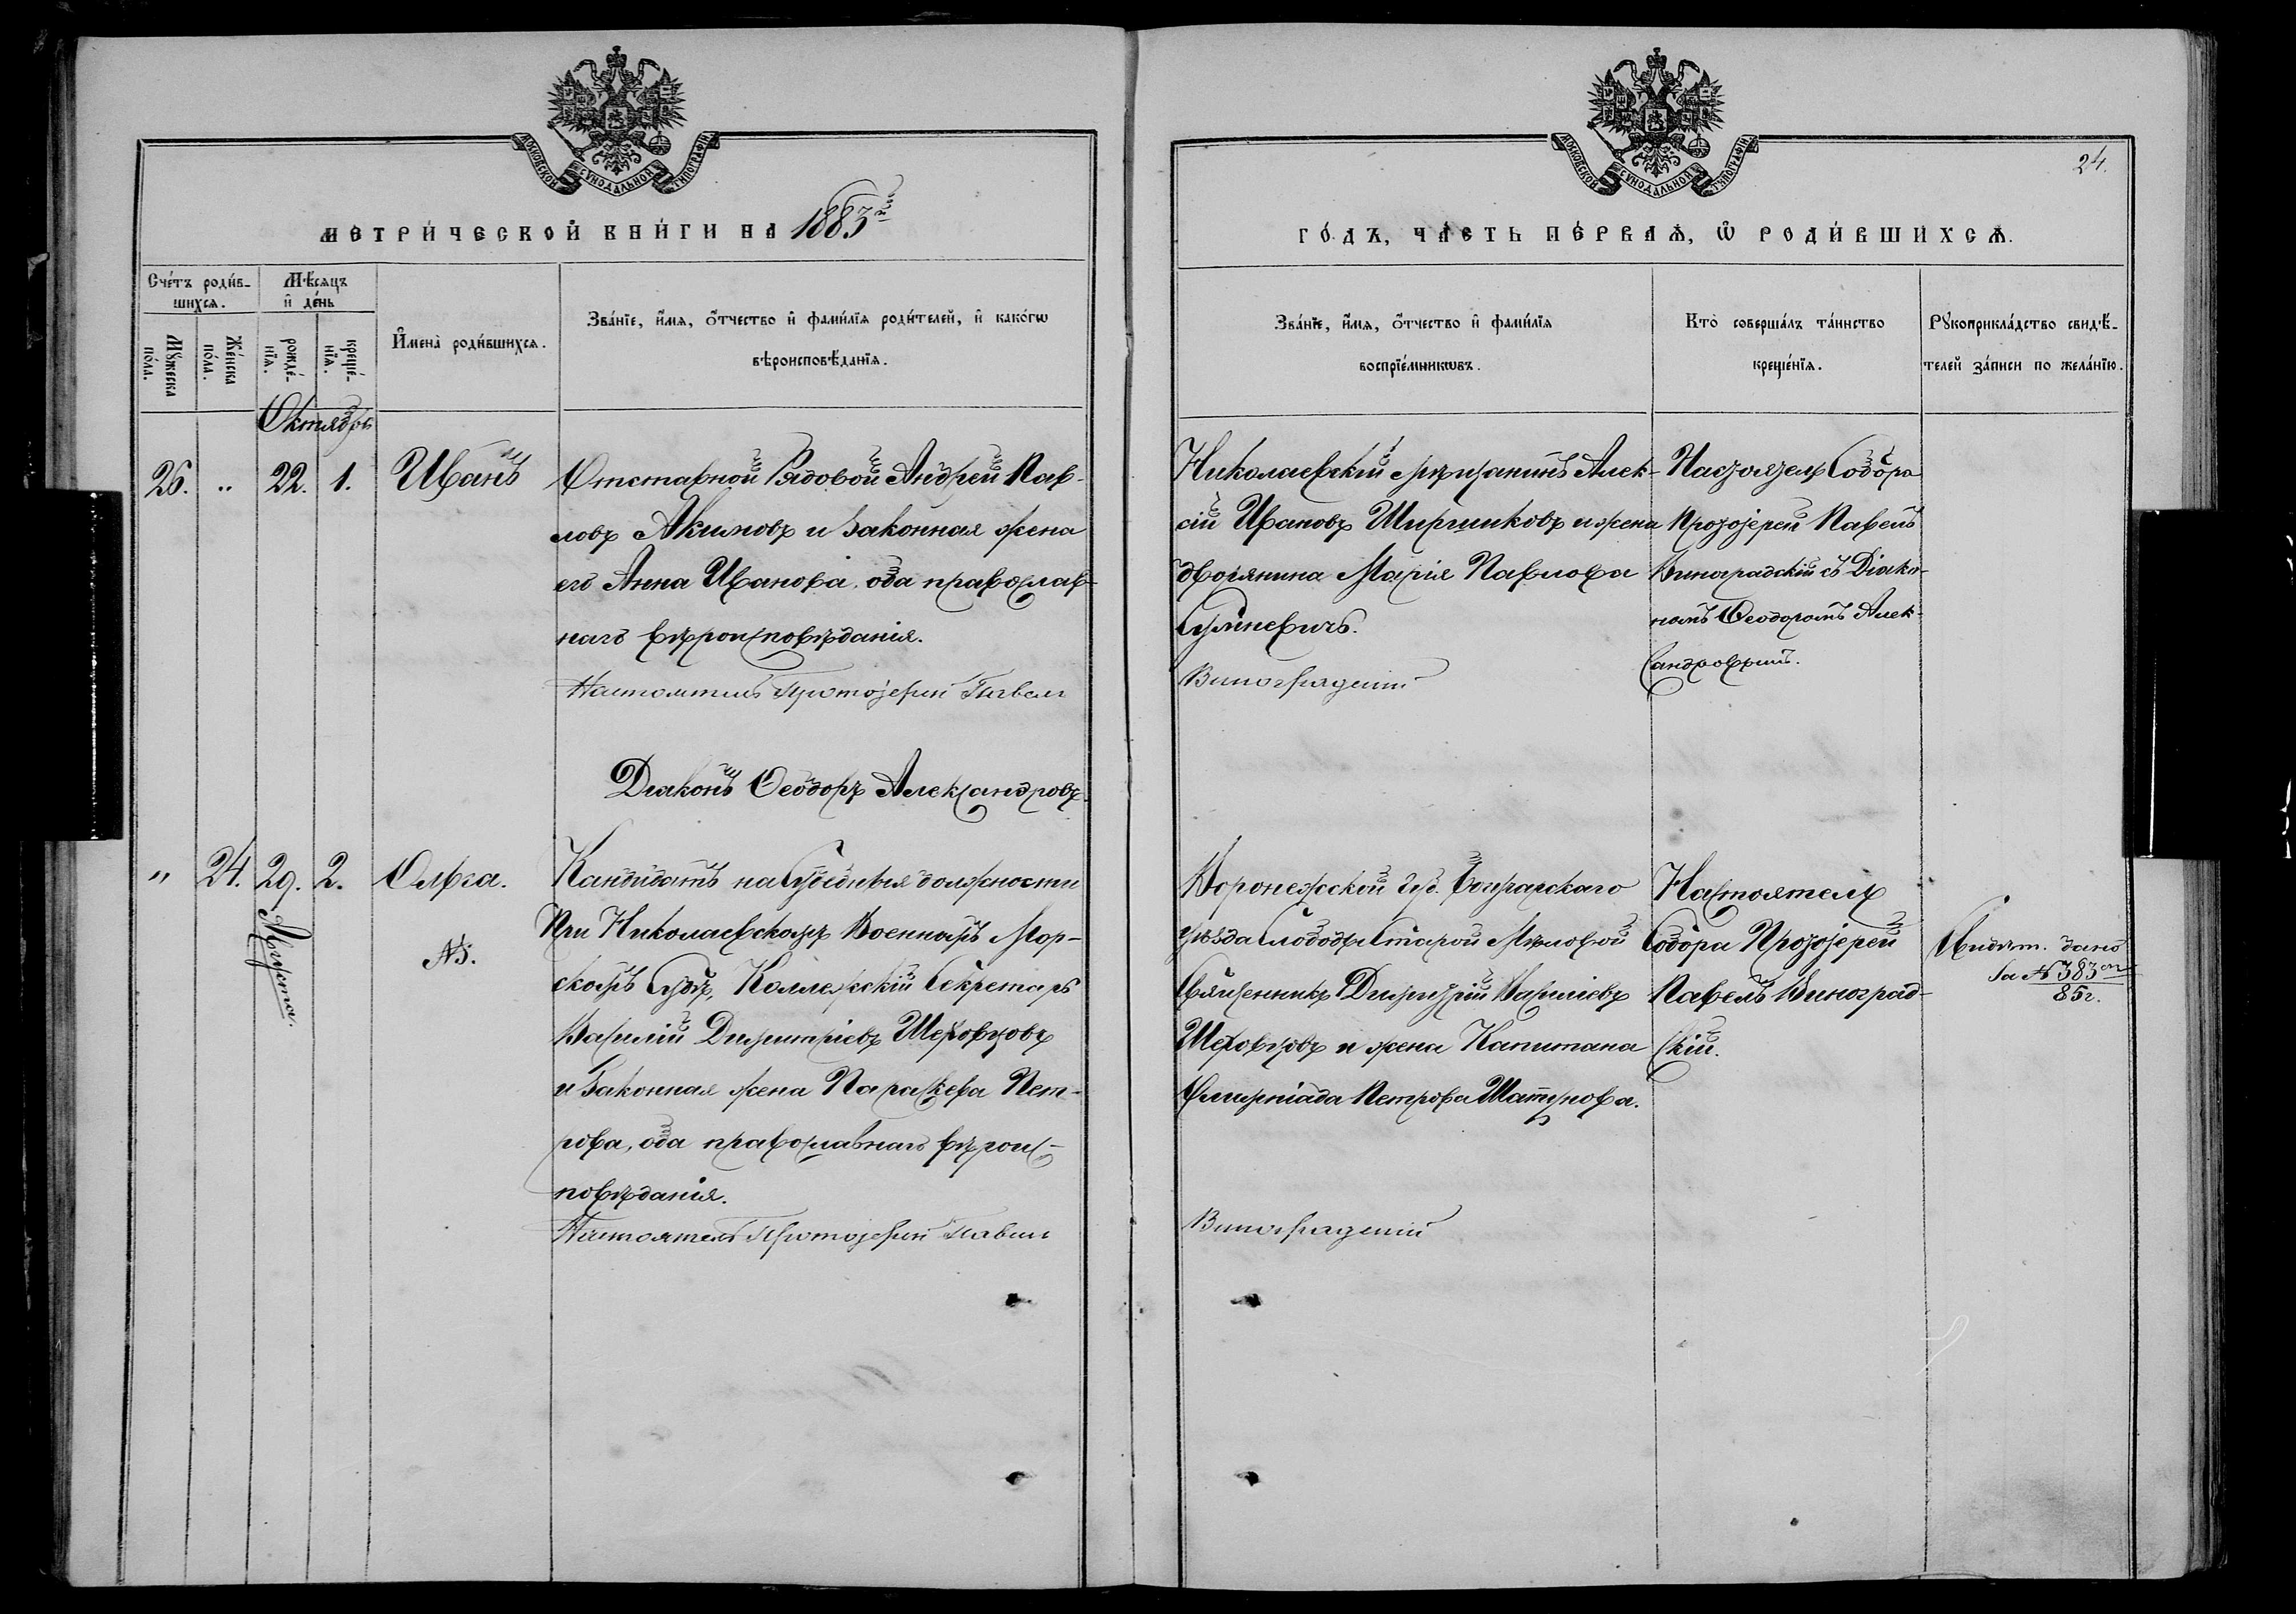 МОСКОВСКОЙ СѴНОДАЛЬНОЙ ТѴПОГРАФІИ
МОСКОВСКОЙ СѴНОДАЛЬНОЙ ТѴПОГРАФІИ
24.
МЕТРИ́ЧЕСКОЙ КНИ́ГИ НА 1883й
ГО́ДЪ, ЧА́СТЬ ПЕ́РВАѦ, Ѡ РОДИ́ВШИХСѦ.
Сче́тъ роди́в-
шихсѧ.
Мꙋ́жеска
по́ла.
Же́нска
по́ла.
Мѣ́сѧцъ
и҆ де́нь
рожде́-
нїѧ.
креще́-
нїѧ.
И҆мена̀ роди́вшихсѧ.
Зва́нїе, и҆́мѧ, ѻ҆́тчество и҆ фами́лїѧ роди́телей, и҆ како́гѡ
вѣроисповѣ́данїѧ.
Зва́нїе, и҆́мѧ, ѻ҆́тчество и҆ фами́лїѧ
воспрїе́мникѡвъ.
Кто̀ соверша́лъ та́инство
креще́нїѧ.
Рꙋкоприкла́дство свидѣ́-
телей за́писи по жела́нїю.
Октябрь
26. „ 22. 1. Иванъ
Отставной Рядовой Андрей Пав-
ловъ Акимовъ и законная жена
его Анна Иванова, оба православ-
наго вѣроисповѣданія.
Настоятель Протоіерей Павелъ
Діаконъ Ѳеодоръ Александровъ.
Николаевскій мѣщанинъ Алек-
сій Ивановъ Ширшиковъ и жена
дворянина Марія Павлова
Виноградскій
Настоятель Собора
Протоіерей Павелъ
Виноградскій съ Діако-
номъ Ѳеодоромъ Алек-
сандровымъ.
„ 24. 29. 2. Ольга.
Августа.
№.
Кандидатъ на Судебныя должности
При Николаевскомъ Военномъ Мор-
скомъ Судѣ, Коллежскій Секретарь
Василій Димитріевъ Шеховцовъ
и законная жена Параскева Пет-
рова, оба православнаго вѣроис-
повѣданія.
Настоятель Протоіерей Павелъ
Воронежской губ. Богучарскаго
уѣзда Слободы Старой Мѣловой
Священникъ Димитрій Василіевъ
Шеховцовъ и жена Капитана
Олимпіада Петрова
Виноградскій
Настоятель
Собора Протоіерей
Павелъ Виноград-
скій.
Свидѣт. дано
за № 383мъ
85г.